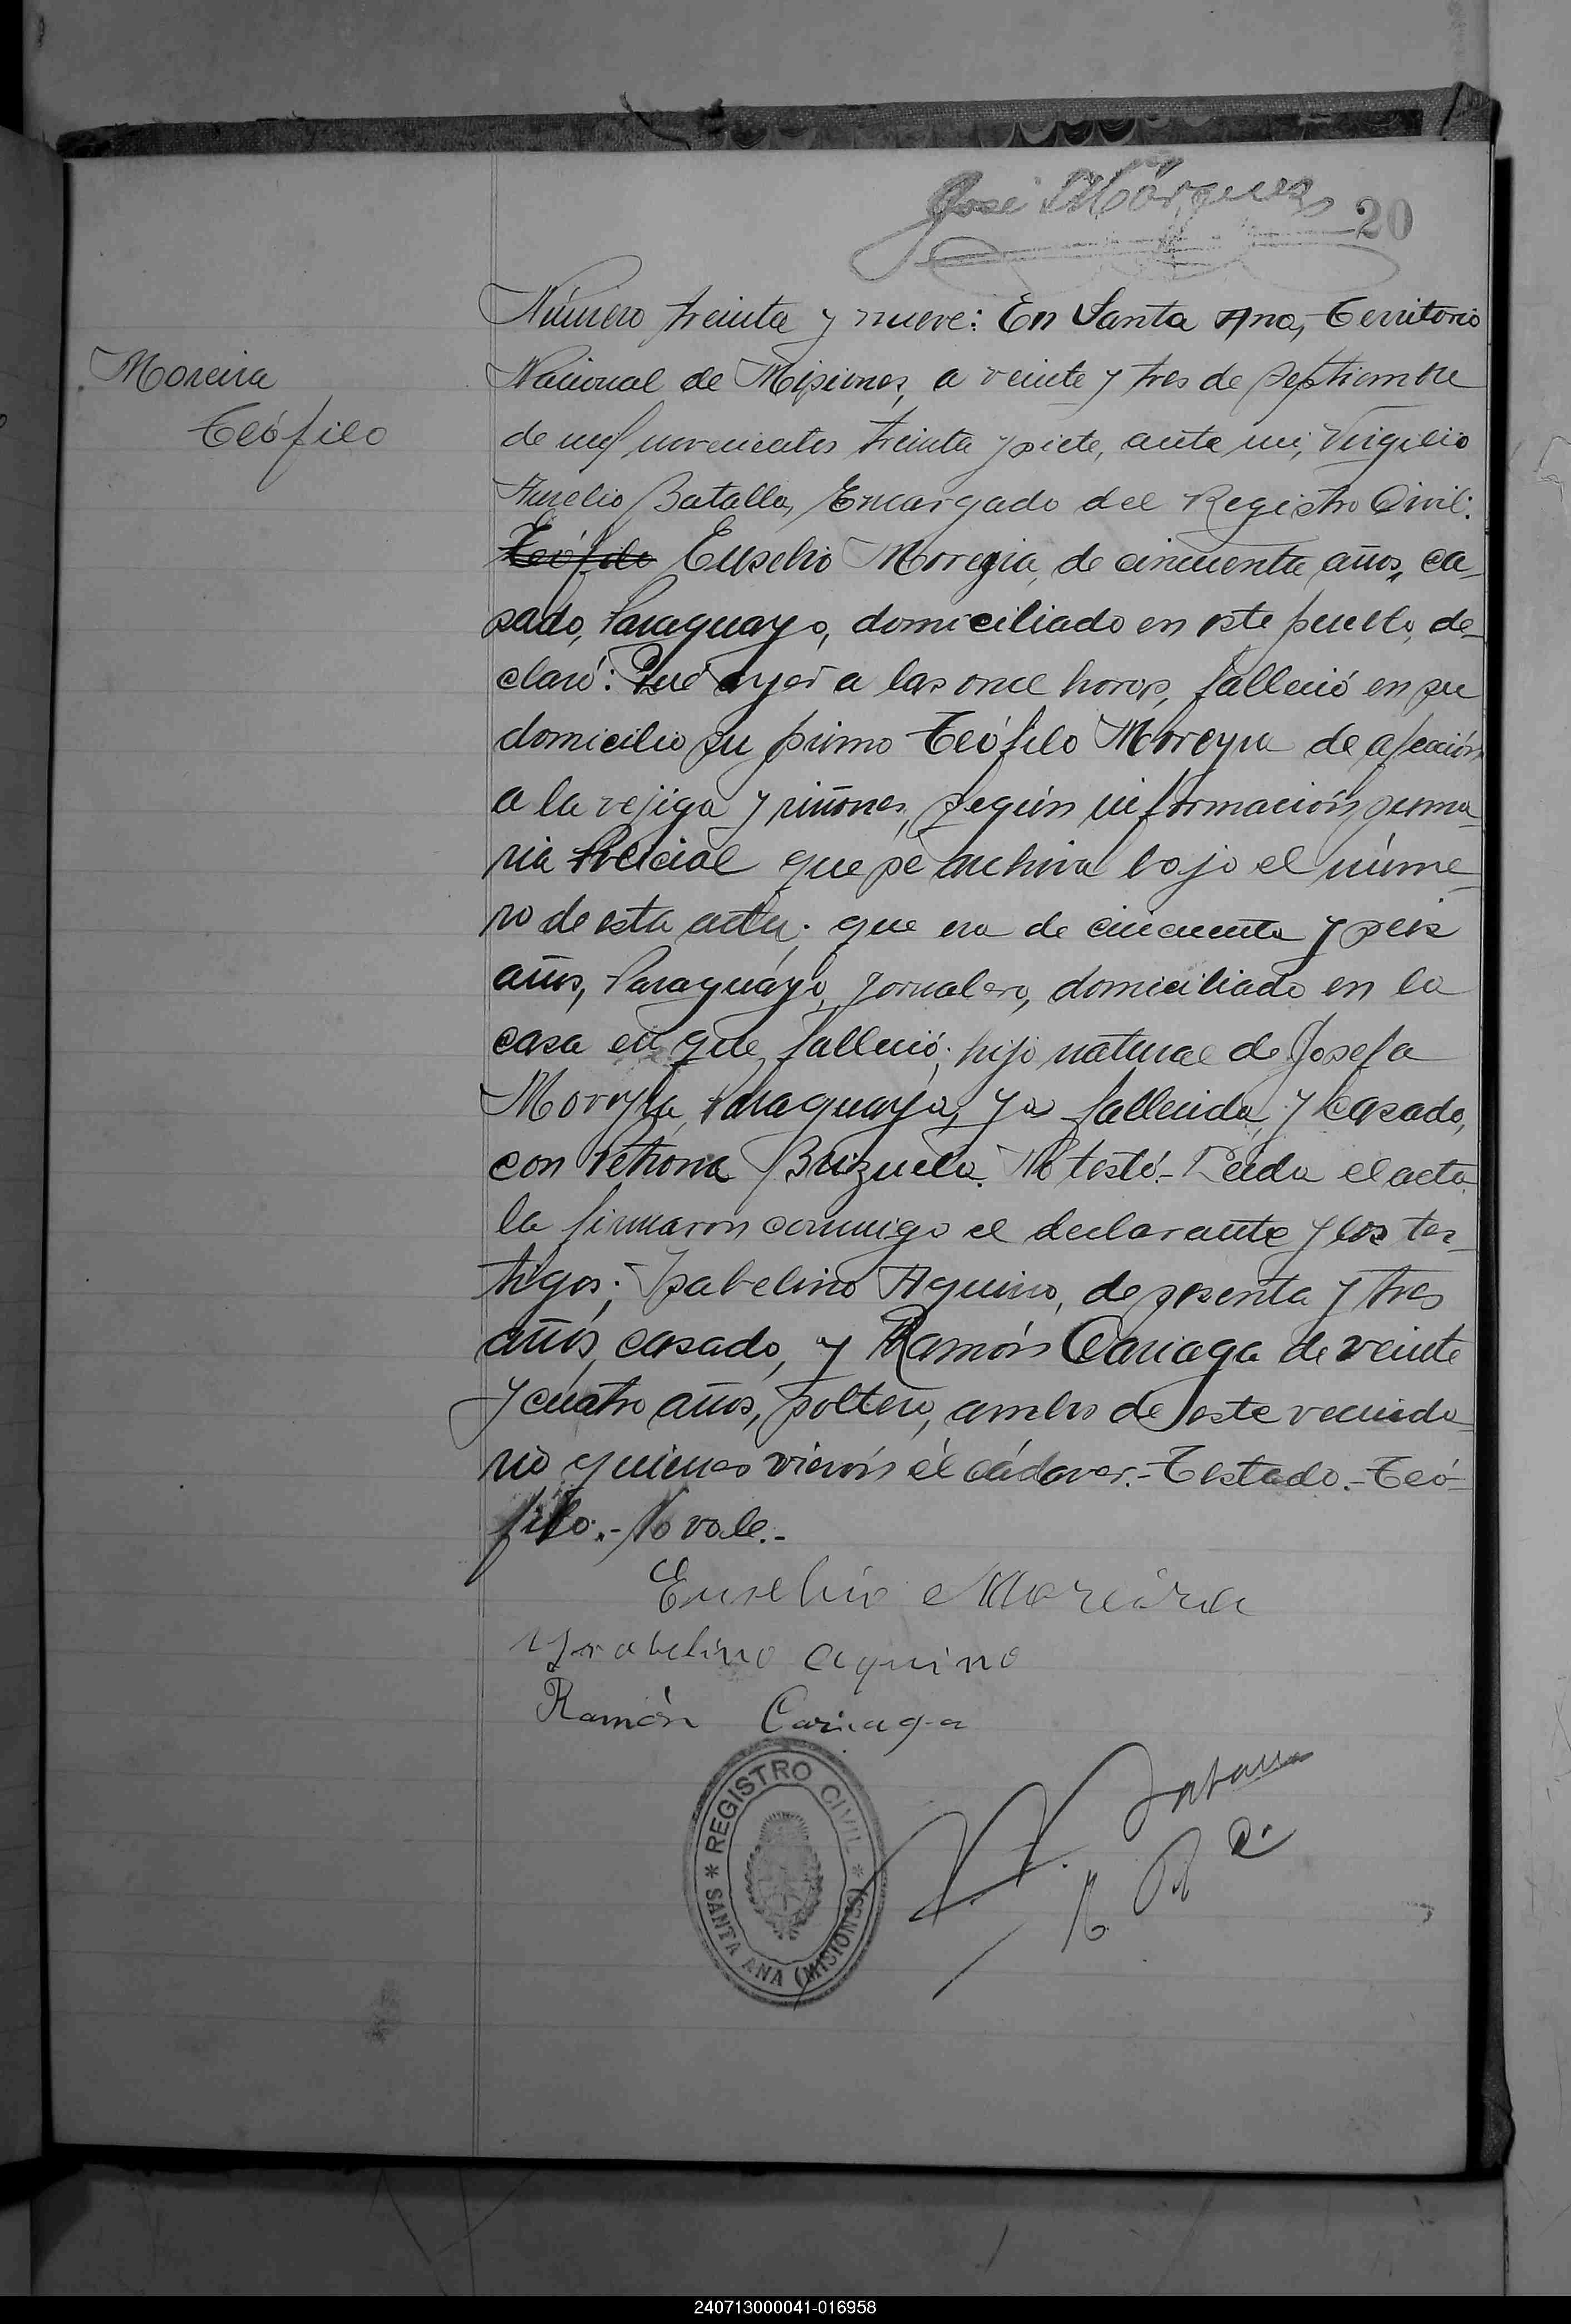 José Márquez 20
Número treinta y nueve: En Santa Ana, Territorio
Moreira
Nacional de Misiones, a veinte y tres de septiembre
Teófilo
de mil novecientos treinta y siete, ante mi, Virgilio
Aurelio Batalla, Encargado del Registro Civil:
Teófilo Eusebio Moreyra, de cincuenta años, ca-
sado, Paraguayo, domiciliado en este pueblo, de-
claró: Que ayer a las once horas, falleció en su
domicilio su primo Teófilo Moreyra de afección
a la vejiga y riñones, según información suma-
ria Policial que se archiva bajo el núme-
ro de esta acta; que era de cincuenta y seis
años, Paraguayo, jornalero, domiciliado en la
casa en que falleció; hijo natural de Josefa
Moreyra, Paraguaya, ya fallecida, y casado,
con Petrona Brizuela. No testó.- Leida el acta
la firmaron conmigo el declarante y los tes-
tigos; Isabelino Aquino, de sesenta y tres
años, casado, y Ramón Cariaga de veinte
y cuatro años, soltero, ambos de este vecinda-
rio quienes vieron el cádaver.- Testado.- Teó-
filo.- No vale.-
Eusebio Moreira
Ysabelino Aquino
Ramón Cariaga
REGISTRO CIVIL
SANTA ANA (MISIONES)
240713000041-016958